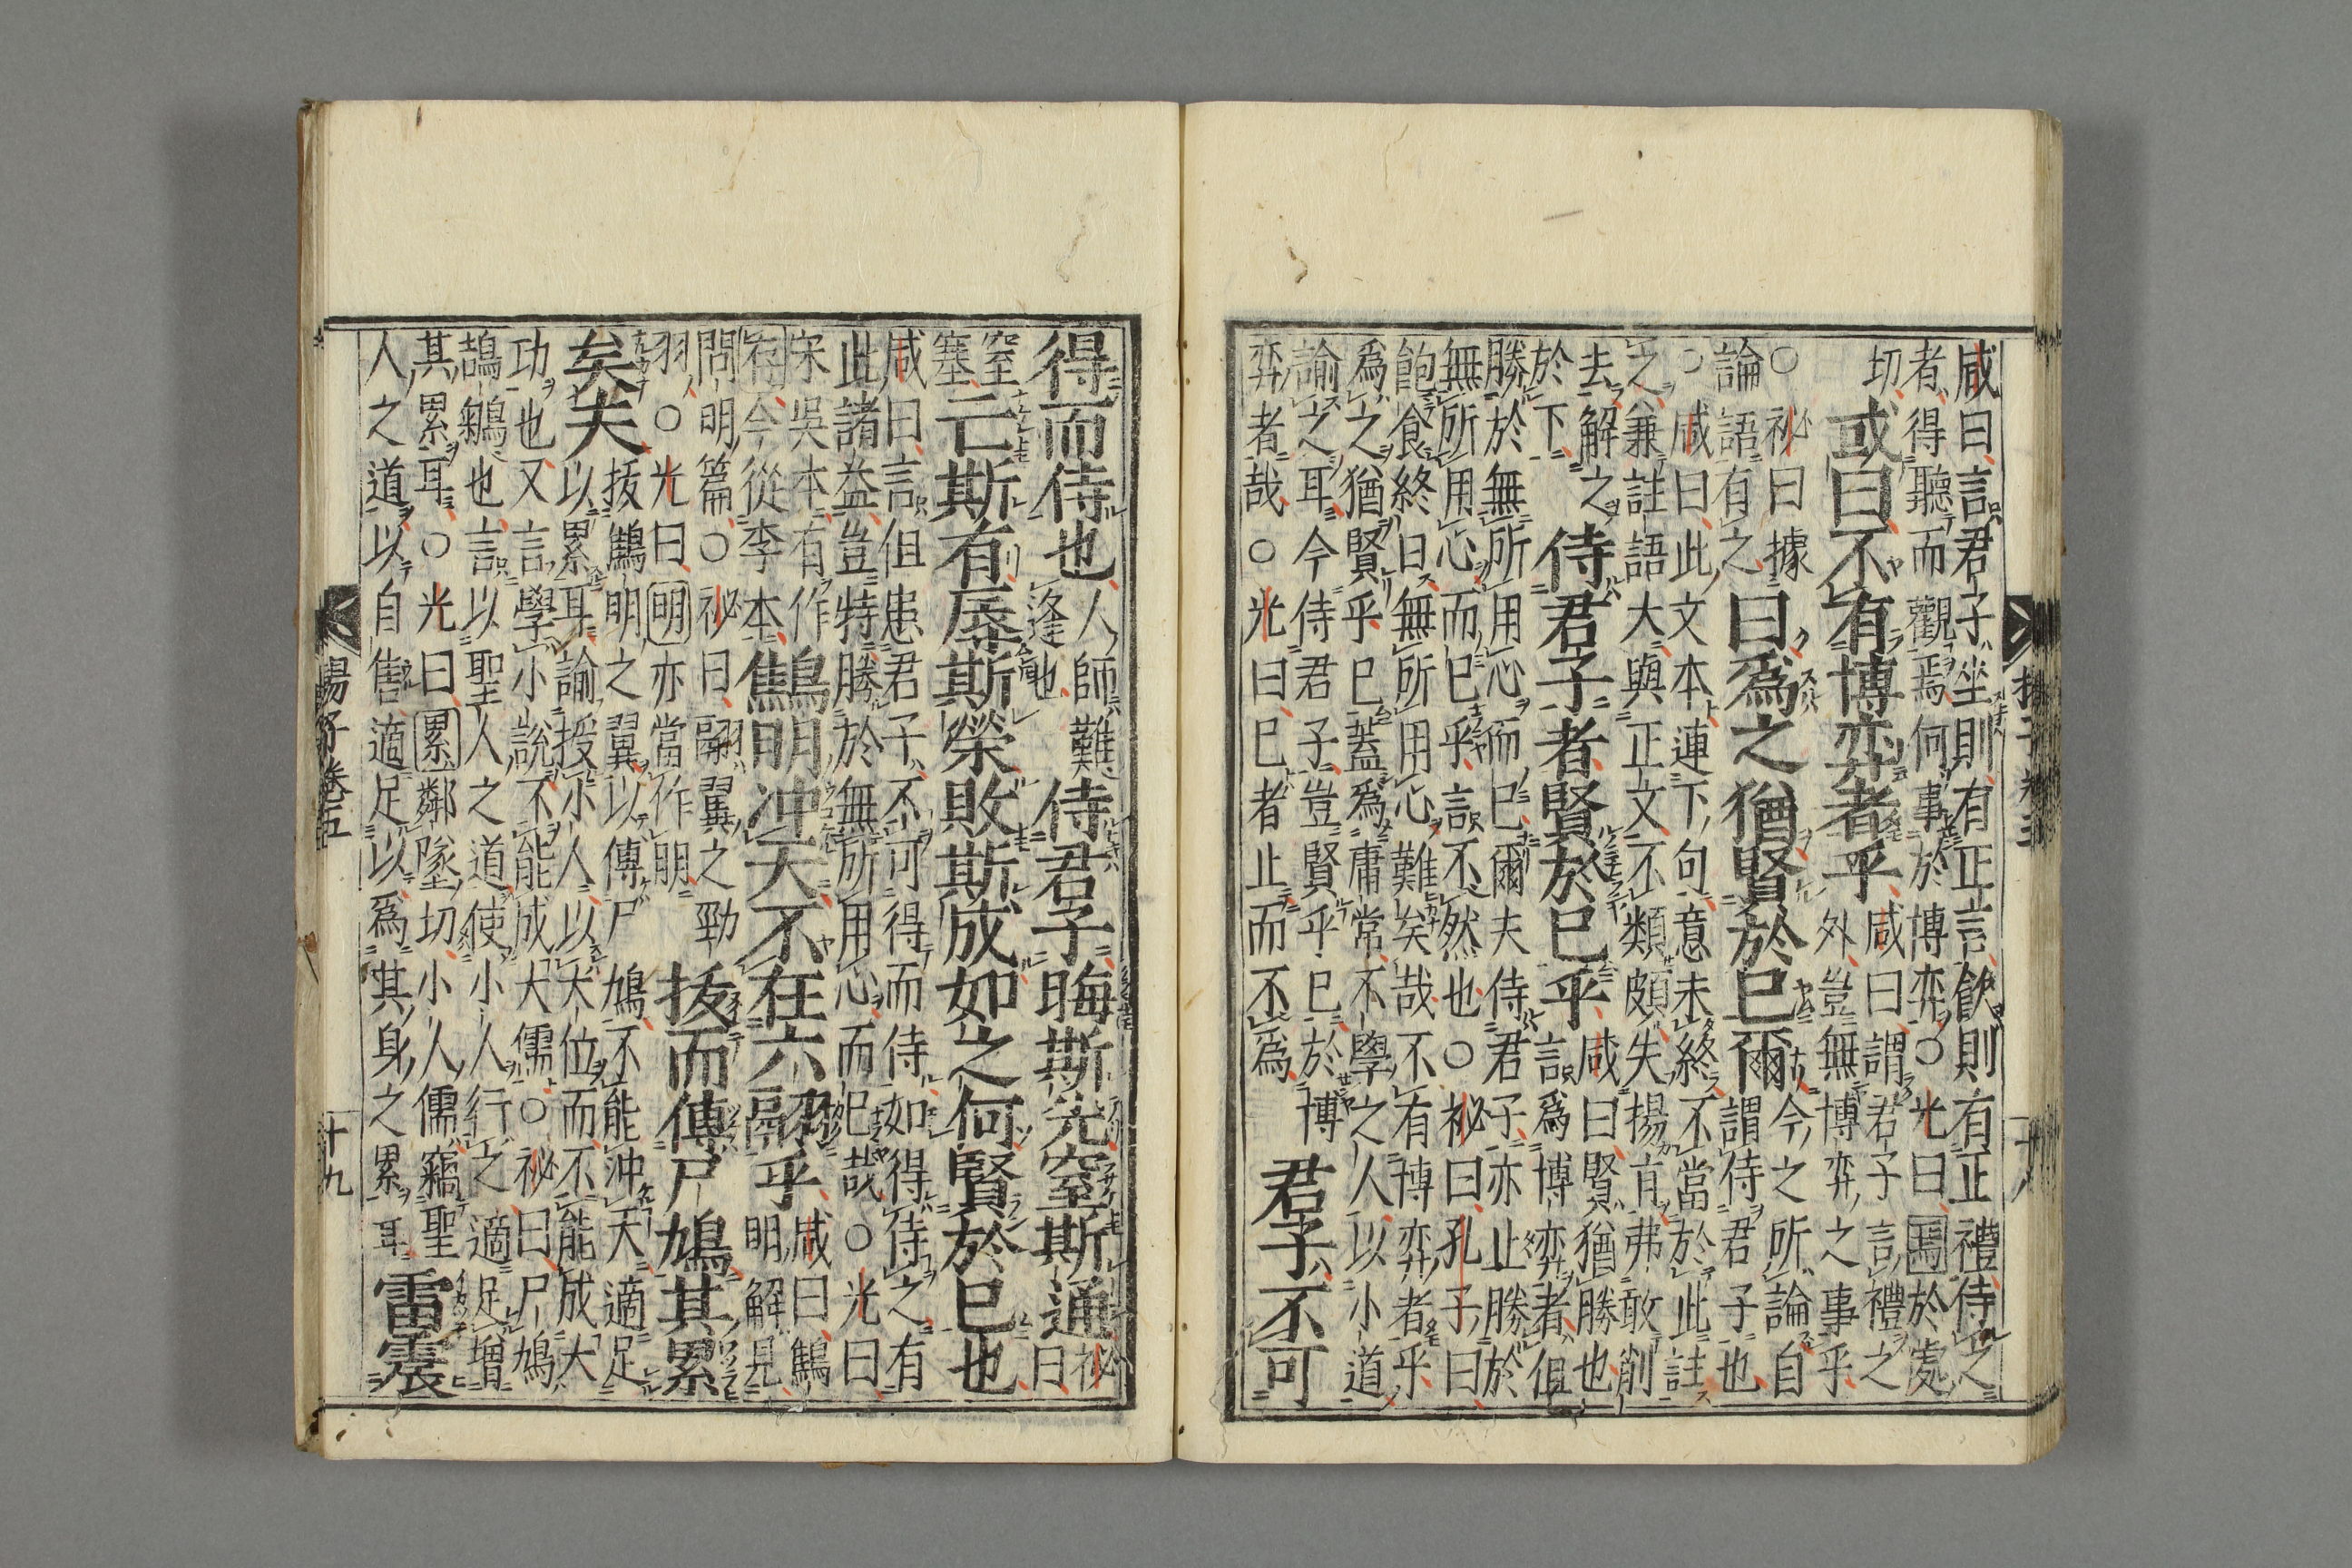 咸曰言君子坐則有正言飲則有正禮侍之
者得聽而觀焉何事於博弈○光曰焉於處
切
或曰不有博弈者乎
咸曰謂君子言禮之
外豈無博弈之事乎
今之所論自
○祕曰據
論語有之
曰爲之猶賢於已爾
謂侍君子也
○咸曰此文本連下句意未終不當於此註
之兼註語大與正文不類頗失揚肓弗敢削
去解之
於下
侍君子者賢於已乎
咸曰賢猶勝也
言爲博弈者但
勝於無所用心而已爾夫侍君子亦止勝於
無所用心而已乎言不然也○祕曰孔子曰
飽食終日無所用心難矣哉不有博弈者乎
爲之猶賢乎已蓋爲庸常不學之人以小道
諭之耳今侍君子豈賢乎已於博
弈者哉○光曰已者止而不爲
君子不可
得而侍也
人師難
逢也
侍君子晦斯光窒斯通
祕曰
窒
塞
亡斯有辱斯榮敗斯成如之何賢於已也
咸曰言但患君子不可得而侍如得侍之有
此諸益豈特勝於無所用心而已哉○光曰
宋吳本有作
有今從李本
鷦明冲天不在六翮乎
咸曰鷦
明解見
問明篇○祕曰翮翼之勁
羽○光曰明亦當作朙
拔而傅尸鳩其累
矣夫
拔鷦明之翼以傅尸鳩不能沖天適足
以累耳諭授小人以大位而不能成大
功也又言學小說不能成大儒○祕曰尸鳩
鴣鵴也言以聖人之道使小人行之適足增
其累耳○光曰累鄰墜切小人儒竊聖
人之道以自售適足以爲其身之累耳
雷震
揚子卷五
十九